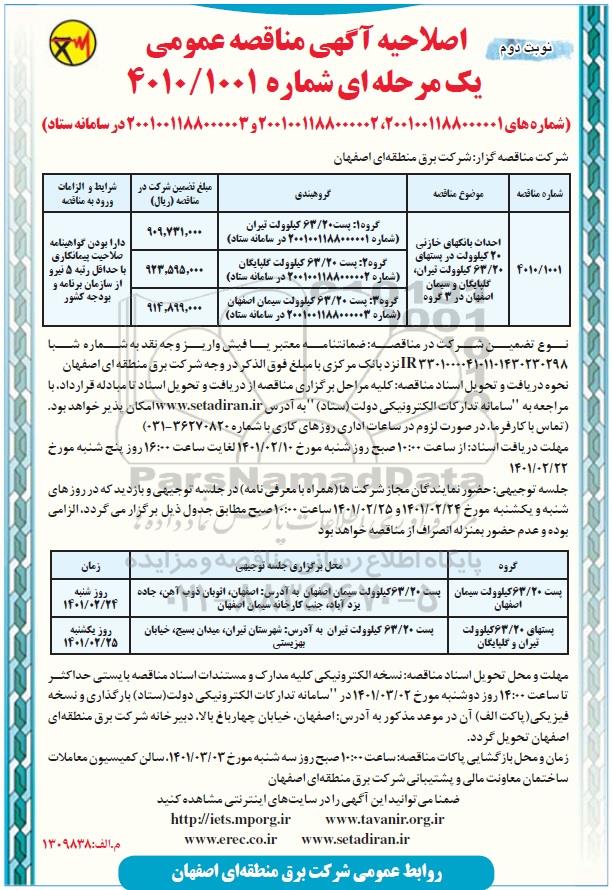 نوبت دوم
اصلاحیه آگهی مناقصه عمومی
یک مرحله ای شماره ۴۰۱۰/۱۰۰۱
(شماره های ۲۰۰۱۰۰۱۱۸۸۰۰۰۰۰۱، ۲۰۰۱۰۰۱۱۸۸۰۰۰۰۰۲ و ۲۰۰۱۰۰۱۱۸۸۰۰۰۰۰۳ در سامانه ستاد)
شرکت مناقصه گزار: شرکت برق منطقه‌ای اصفهان
شماره مناقصه
موضوع مناقصه
گروهبندی
مبلغ تضمین شرکت در مناقصه (ریال)
شرایط و الزامات ورود به مناقصه
۴۰۱۰/۱۰۰۱
احداث بانکهای خازنی
۲۰ کیلوولت در پستهای
۶۳/۲۰ کیلوولت تیران،
گلپایگان و سیمان
اصفهان در ۳ گروه
گروه۱: پست ۶۳/۲۰ کیلوولت تیران
(شماره ۲۰۰۱۰۰۱۱۸۸۰۰۰۰۰۱ در سامانه ستاد)
۹۰۹,۷۳۱,۰۰۰
گروه۲: پست ۶۳/۲۰ کیلوولت گلپایگان
(شماره ۲۰۰۱۰۰۱۱۸۸۰۰۰۰۰۲ در سامانه ستاد)
۹۲۳,۵۹۵,۰۰۰
گروه۳: پست ۶۳/۲۰ کیلوولت سیمان اصفهان
(شماره ۲۰۰۱۰۰۱۱۸۸۰۰۰۰۰۳ در سامانه ستاد)
۹۱۴,۸۹۹,۰۰۰
دارا بودن گواهینامه
صلاحیت پیمانکاری
با حداقل رتبه ۵ نیرو
از سازمان برنامه و
بودجه کشور
نوع تضمین شرکت در مناقصه: ضمانتنامه معتبر یا فیش واریز وجه نقد به شماره شبا
IR۳۳۰۱۰۰۰۰۴۱۰۱۱۰۱۴۳۰۲۳۰۲۹۸ نزد بانک مرکزی با مبلغ فوق الذکر در وجه شرکت برق منطقه ای اصفهان
نحوه دریافت و تحویل اسناد مناقصه: کلیه مراحل برگزاری مناقصه از دریافت و تحویل اسناد تا مبادله قرارداد، با
مراجعه به "سامانه تدارکات الکترونیکی دولت (ستاد)" به آدرس www.setadiran.ir امکان پذیر خواهد بود.
(تماس با کارفرما، در صورت لزوم در ساعات اداری روزهای کاری با شماره ۳۶۲۷۰۸۲۰-۰۳۱)
مهلت دریافت اسناد: از ساعت ۱۰:۰۰ صبح روز شنبه مورخ ۱۴۰۱/۰۲/۱۰ لغایت ساعت ۱۶:۰۰ روز پنج شنبه مورخ
۱۴۰۱/۰۲/۲۲
جلسه توجیهی: حضور نمایندگان مجاز شرکت ها (همراه با معرفی نامه) در جلسه توجیهی و بازدید که در روز های
شنبه و یکشنبه مورخ ۱۴۰۱/۰۲/۲۴ و ۱۴۰۱/۰۲/۲۵ ساعت ۱۰:۰۰ صبح مطابق جدول ذیل برگزار می گردد، الزامی
بوده و عدم حضور بمنزله انصراف از مناقصه خواهد بود
گروه
محل برگزاری جلسه توجیهی
زمان
پست ۶۳/۲۰ کیلوولت سیمان
اصفهان
پست ۶۳/۲۰ کیلوولت سیمان اصفهان به آدرس: اصفهان، اتوبان ذوب آهن، جاده
یزد آباد، جنب کارخانه سیمان اصفهان
روز شنبه
۱۴۰۱/۰۲/۲۴
پستهای ۶۳/۲۰ کیلوولت
تیران و گلپایگان
پست ۶۳/۲۰ کیلوولت تیران به آدرس: شهرستان تیران، میدان بسیج، خیابان
بهزیستی
روز یکشنبه
۱۴۰۱/۰۲/۲۵
مهلت و محل تحویل اسناد مناقصه: نسخه الکترونیکی کلیه مدارک و مستندات اسناد مناقصه بایستی حداکثر
تا ساعت ۱۴:۰۰ روز دوشنبه مورخ ۱۴۰۱/۰۳/۰۲ در "سامانه تدارکات الکترونیکی دولت (ستاد) بارگذاری و نسخه
فیزیکی (پاکت الف) آن در موعد مذکور به آدرس: اصفهان، خیابان چهارباغ بالا، دبیرخانه شرکت برق منطقه‌ای
اصفهان تحویل گردد.
زمان و محل بازگشایی پاکات مناقصه: ساعت ۱۰:۰۰ صبح روز سه شنبه مورخ ۱۴۰۱/۰۳/۰۳، سالن کمیسیون معاملات
ساختمان معاونت مالی و پشتیبانی شرکت برق منطقه‌ای اصفهان
ضمنا می توانید این آگهی را در سایت‌های اینترنتی مشاهده کنید
http://iets.mporg.ir www.tavanir.org.ir
www.erec.co.ir www.setadiran.ir
م.الف: ۱۳۰۹۸۳۸
روابط عمومی شرکت برق منطقه‌ای اصفهان
ParsNamadData
پایگاه اطلاع رسانی مناقصه و مزایده